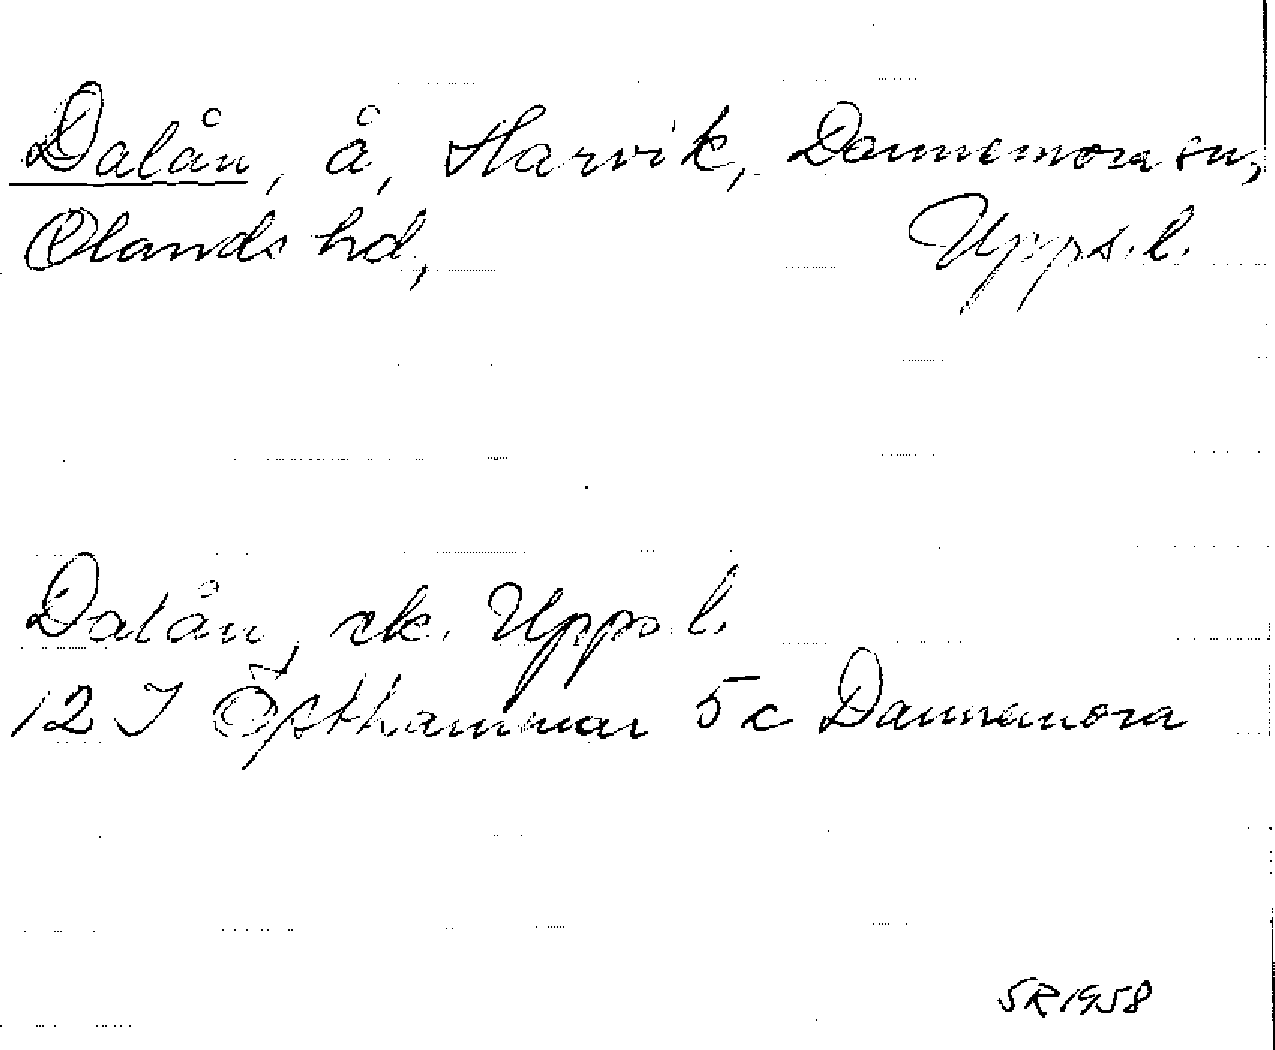 Dalån, å, Harvik, Dannemora sn,
Olands hd, Upps. l.
Dalån, ek. Upps. l.
12 I Östhammar 5c Dannemora
SR 1958